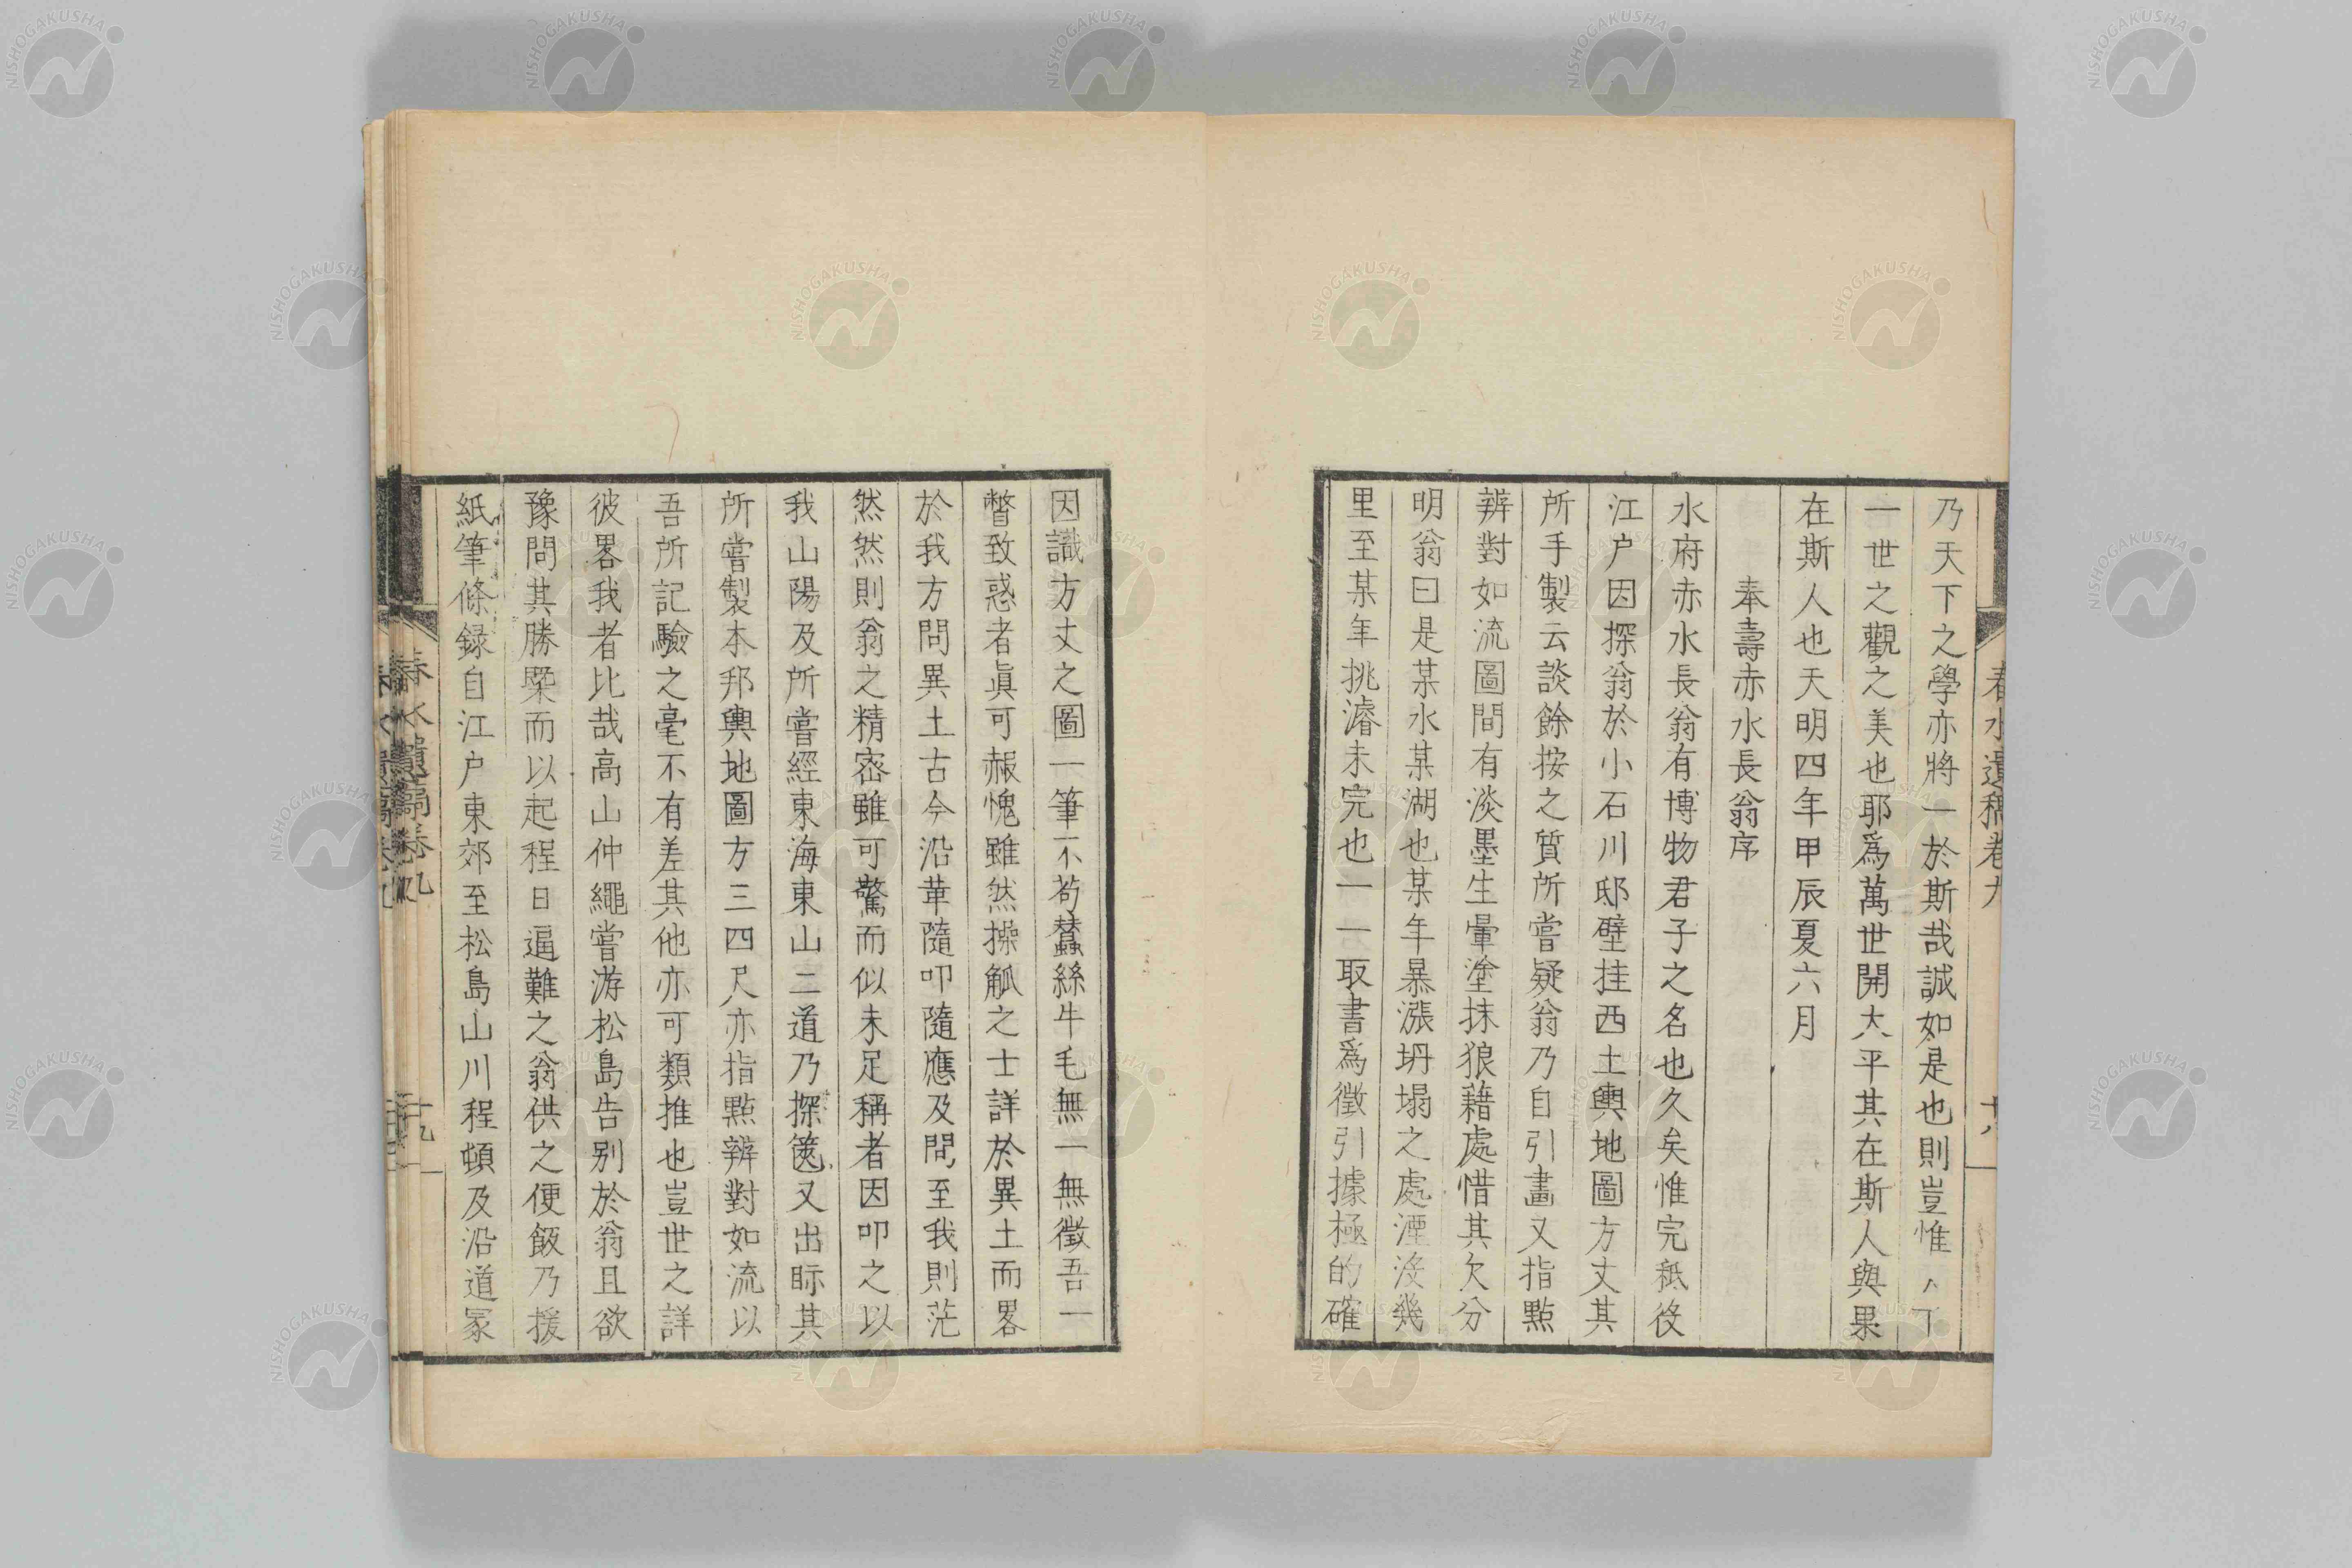 乃天下之學亦將一於斯哉誠如是也則豈惟
一世之觀之美也耶爲萬世開大平其在斯人與果
在斯人也天明四年甲辰夏六月
奉壽赤水長翁序
水府赤水長翁有博物君子之名也久矣惟完祗役
江户因探翁於小石川邸壁挂西土輿地圖方丈其
所手製云談餘按之質所嘗疑翁乃自引畵又指點
辨對如流圖間有淡墨生暈塗抹狼藉處惜其欠分
明翁曰是某水某湖也某年暴漲坍塌之處湮沒幾
里至某年挑濬未完也一一取書爲徵引據極的確
因識方丈之圖一筆不苟蠶絲牛毛無一無徵吾一
瞥致惑者眞可赧愧雖然操觚之士詳於異土而畧
於我方問異土古今沿革隨叩隨應及問至我則茫
然然則翁之精密雖可驚而似未足稱者因叩之以
我山陽及所嘗經東海東山二道乃探篋又出眎其
所嘗製本邦輿地圖方三四尺亦指點辨對如流以
吾所記驗之毫不有差其他亦可類推也豈世之詳
彼畧我者比哉高山仲繩嘗游松島告别於翁且欲
豫問其勝槩而以起程日逼難之翁供之便飯乃援
紙筆條録自江户東郊至松島山川程頓及沿道冢
春水遺稿卷九
十八
春水遺稿卷九
十九